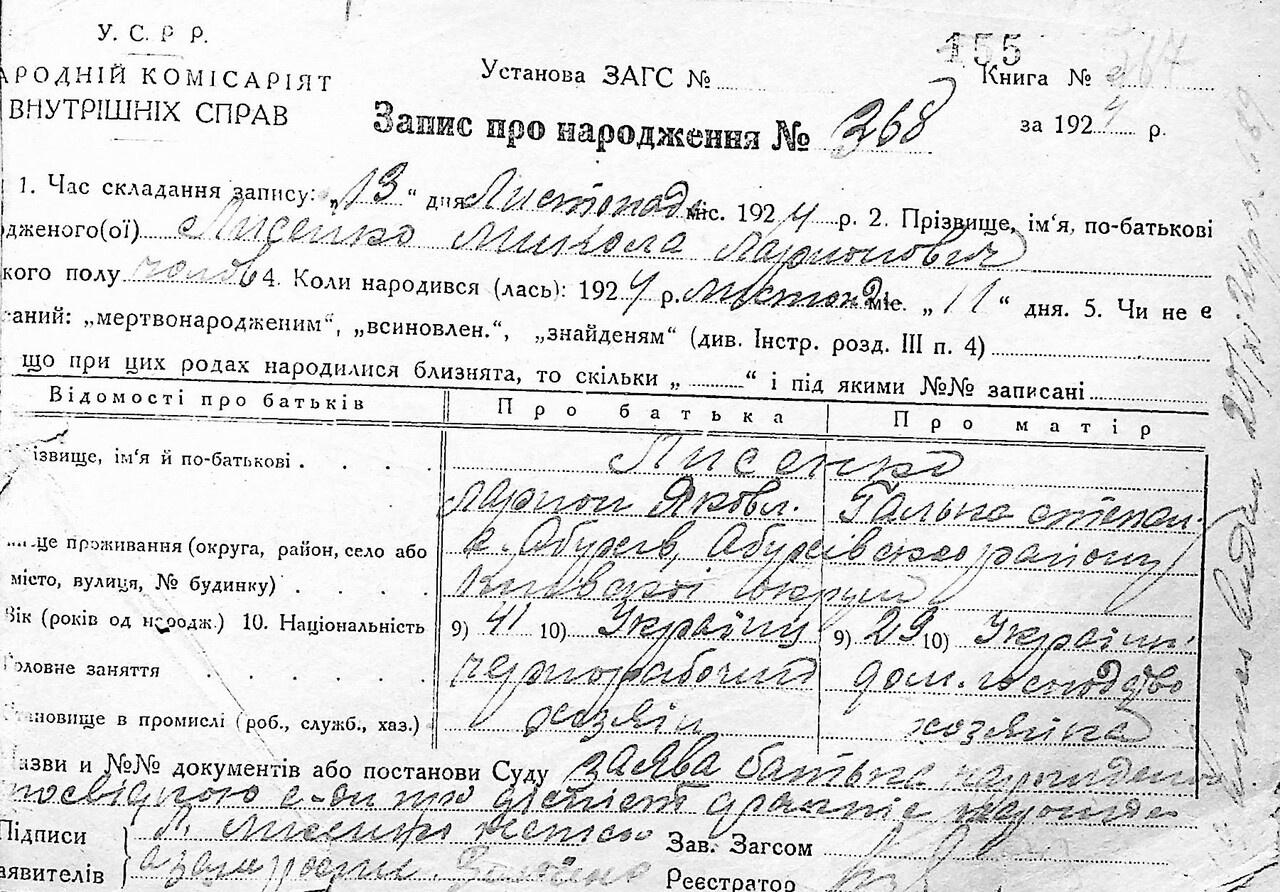 У. С. Р Р.
АРОДНІЙ КОМІСАРІЯТ
ВНУТРІШНІХ СПРАВ
155
Установа ЗАГС №
Книга №
Запис про народження № 368
за 1924 р.
1. Час складання запису: „13“ дня Листопада міс. 1924 р. 2. Прізвище, ім'я, по-батькові
дженого(ої) Лисенко Микола Ларионович
кого полу чолов 4. Коли народився (лась): 1924 р. листопад міс. „11“ дня. 5. Чи не є
саний: „мертвонародженим“, „всиновлен.“, „знайденям“ (див. Інстр. розд. III п. 4)
що при цих родах народилися близнята, то скільки „ “ і під якими №№ записані
Відомості про батьків Про батька Про матір
ізвище, ім'я й по-батькові Лисенко
Ларион Яковл. Гальна степан.
це проживання (округа, район, село або к. Обухів, Обухівського району
місто, вулиця, № будинку) Київської округи
Вік (років од народж.) 10. Національність 9) 41 10) Українец 9) 29 10) Україн.
Головне заняття чернорабочий дом. господарство
тановище в промислі (роб., служб., хаз.) хозяїн хозяйка
Назви и №№ документів або постанови Суду заява батька
Підписи
Л. Лисенко
Зав. Загсом
аявителів
Реєстратор